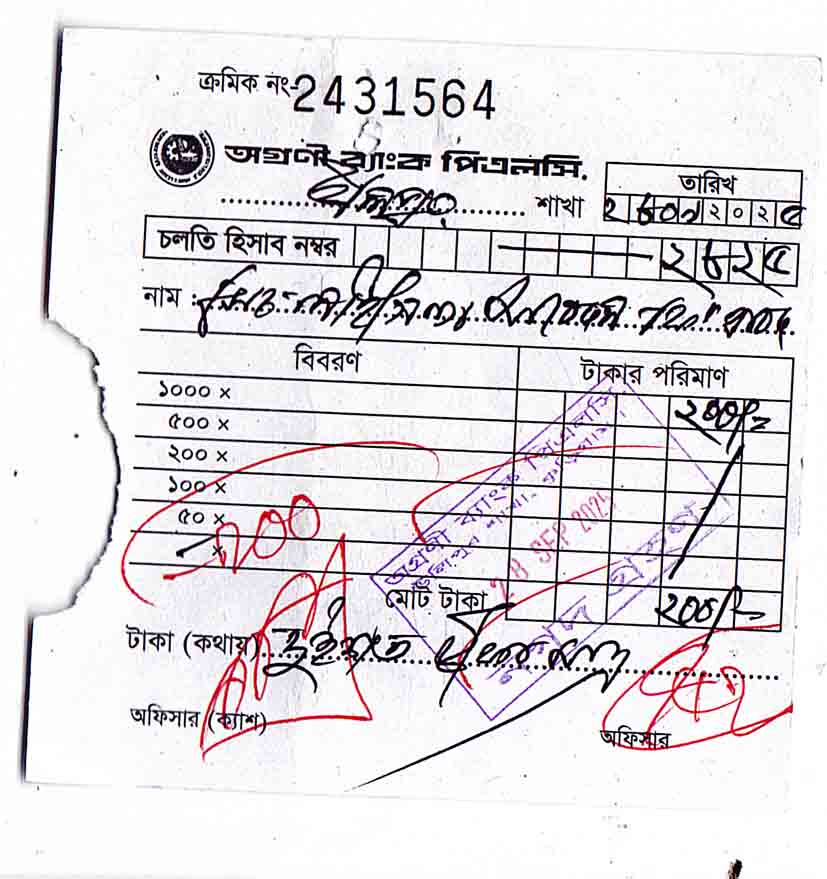 ক্রমিক নং-2431564
অগ্রণী ব্যাংক পিএলসি.
শাখা
তারিখ
২৮০৯২০২৫
চলতি হিসাব নম্বর ২৮২৫
নাম :
বিবরণ টাকার পরিমাণ
১০০০ × ২০০/=
৫০০ ×
২০০ ×
১০০ ×
৫০ ×
×
২০০
অগ্রণী ব্যাংক পিএলসি
উলিপুর শাখা, কুড়িগ্রাম।
28 SEP 2025
নগদ গ্রহণ
মোট টাকা ২০০/=
টাকা (কথায়) দুইশত টাকা মাত্র
অফিসার (ক্যাশ)
অফিসার